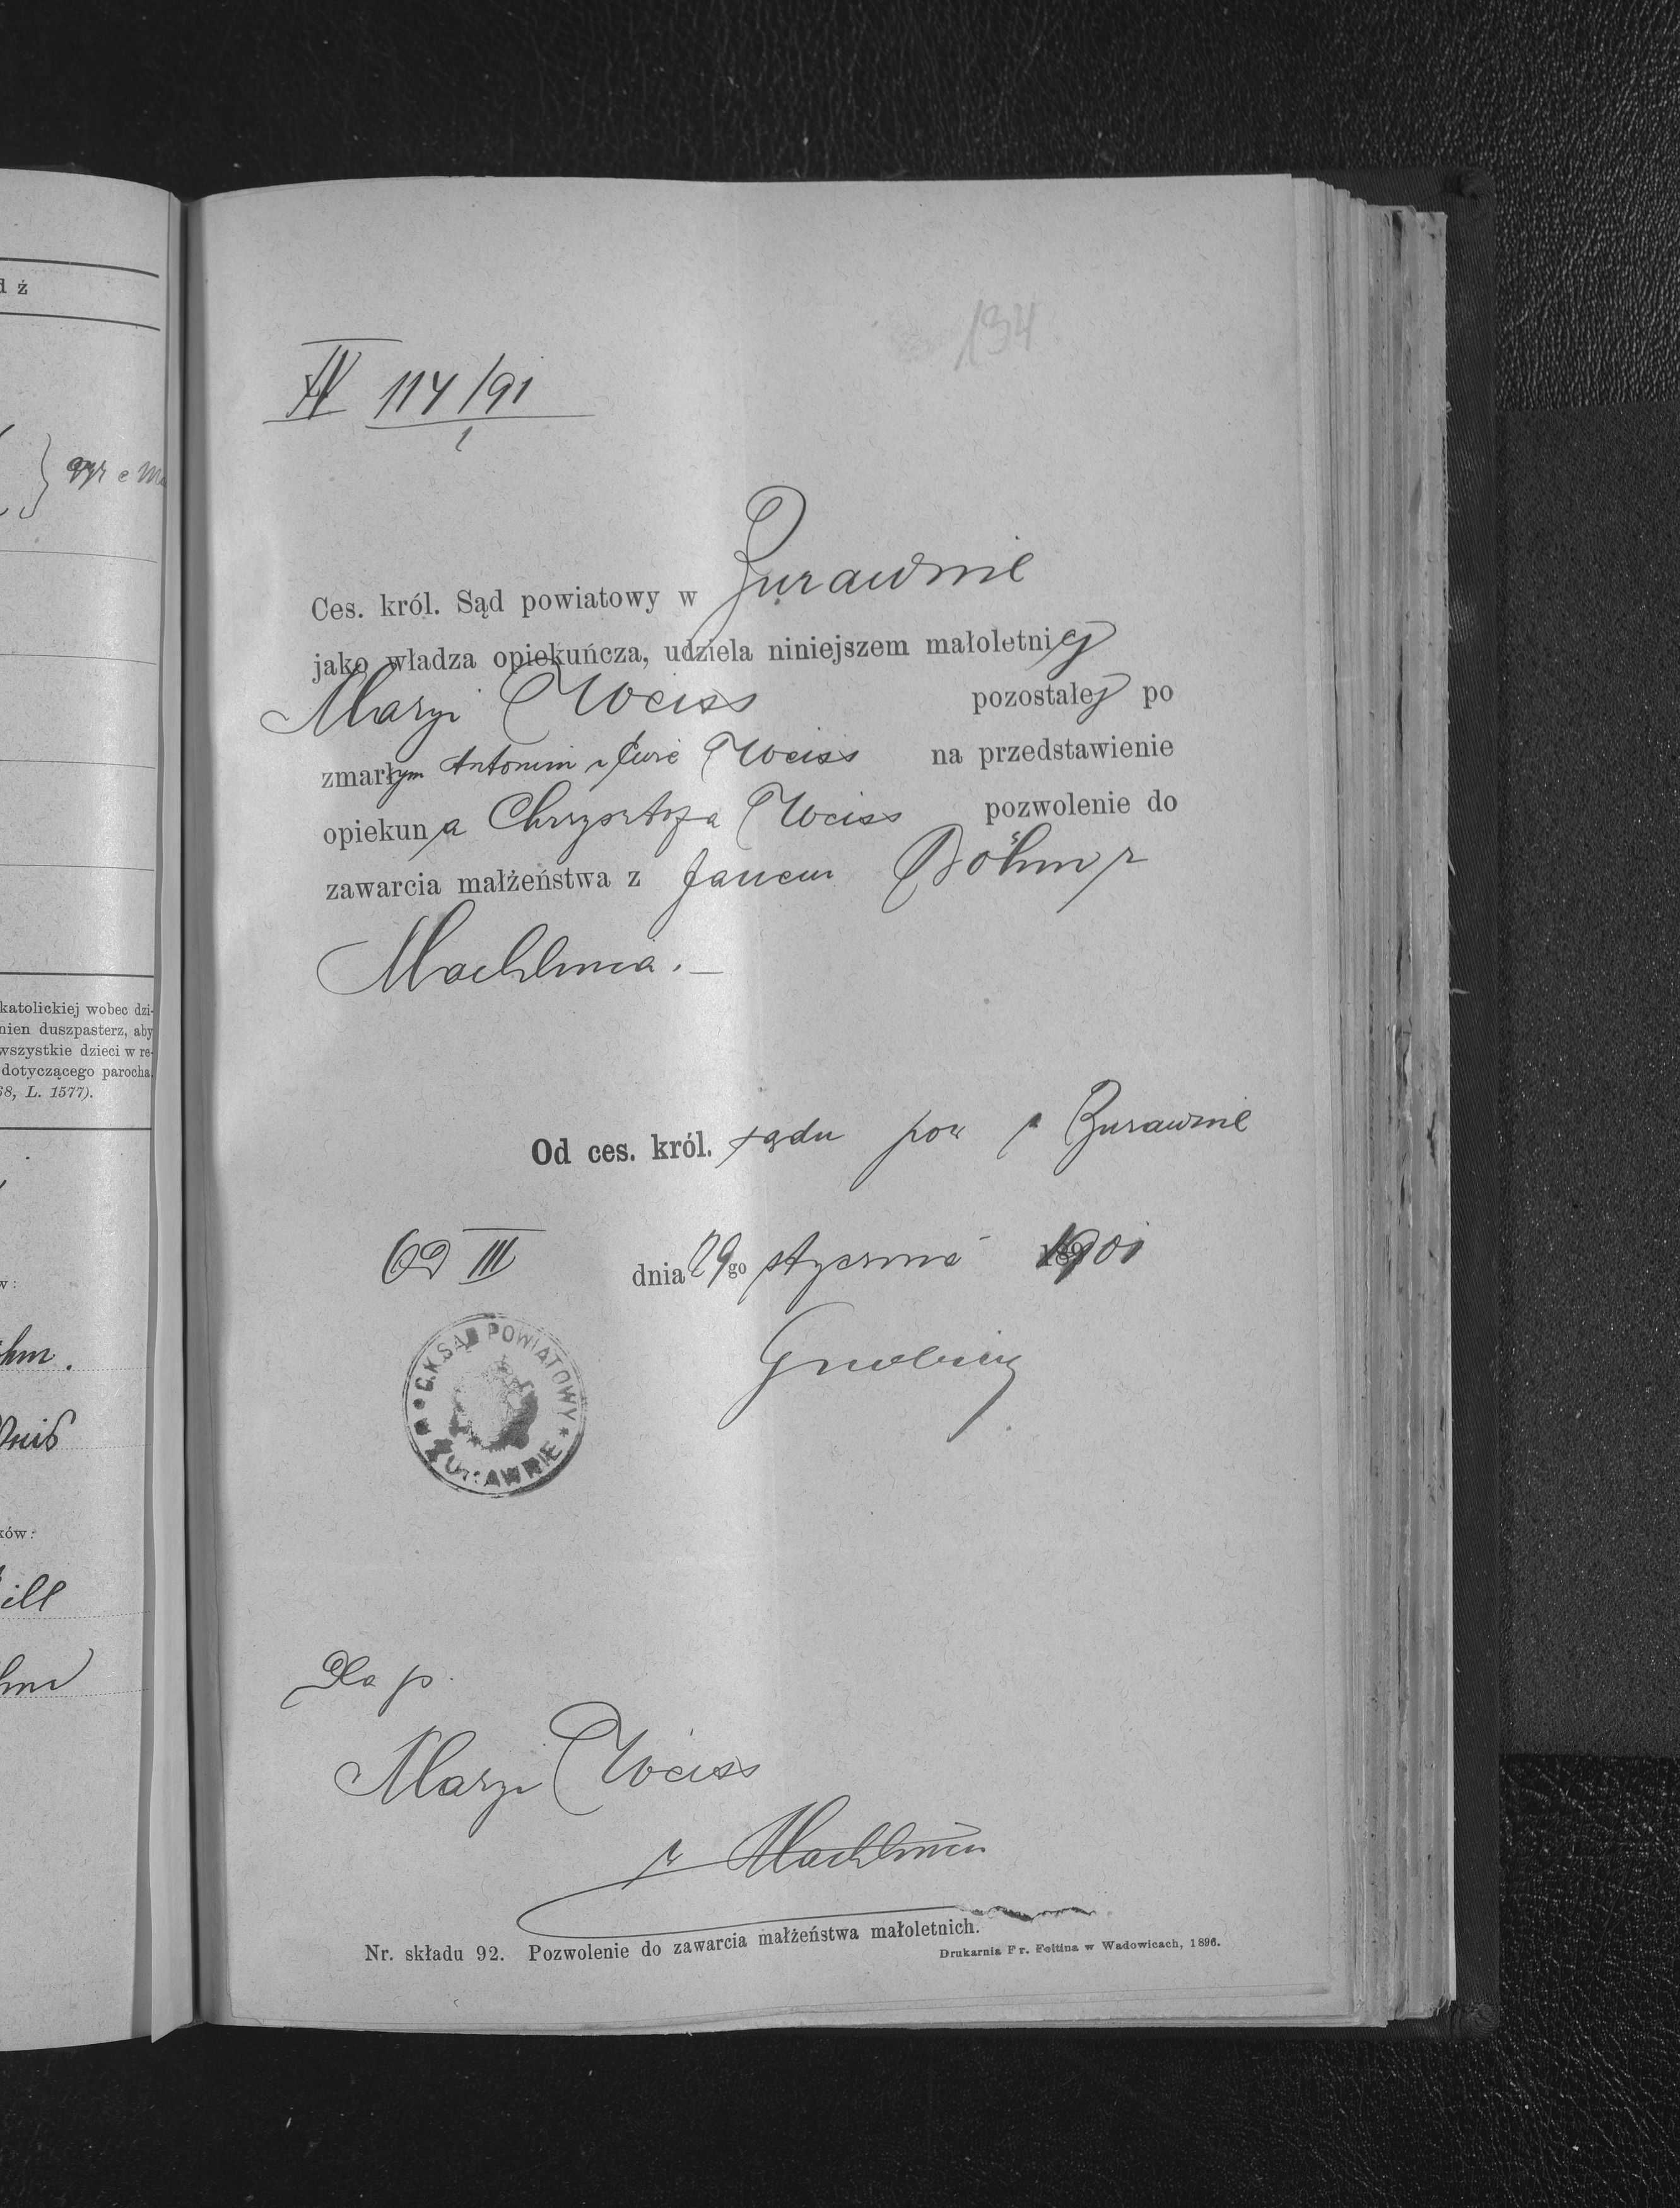 134
IV 114/91
1
Ces. król. Sąd powiatowy w Żurawnie
jako władza opiekuńcza, udziela niniejszem małoletniej
Maryi Weiss pozostałej po
zmarłym Antonim i Ewie Weiss na przedstawienie
opiekuna Chrzysztofa Weiss pozwolenie do
zawarcia małżeństwa z Janem Böhm z
Machlińca.
Od ces. król. sądu pow w Żurawnie
62 III dnia 29go stycznia 1901
C.K.SĄD POWIATOWY
ŻURAWNIE
Dla p.
Maryi Weiss
w Machlińcu
Nr. składu 92. Pozwolenie do zawarcia małżeństwa małoletnich.
Drukarnia Fr. Foltina w Wadowicach, 1896.
d ż
katolickiej wobec dzi-
nien duszpasterz, aby
wszystkie dzieci w re-
dotyczącego parocha.
68, L. 1577).
w:
hm.
ków:
ill
hm